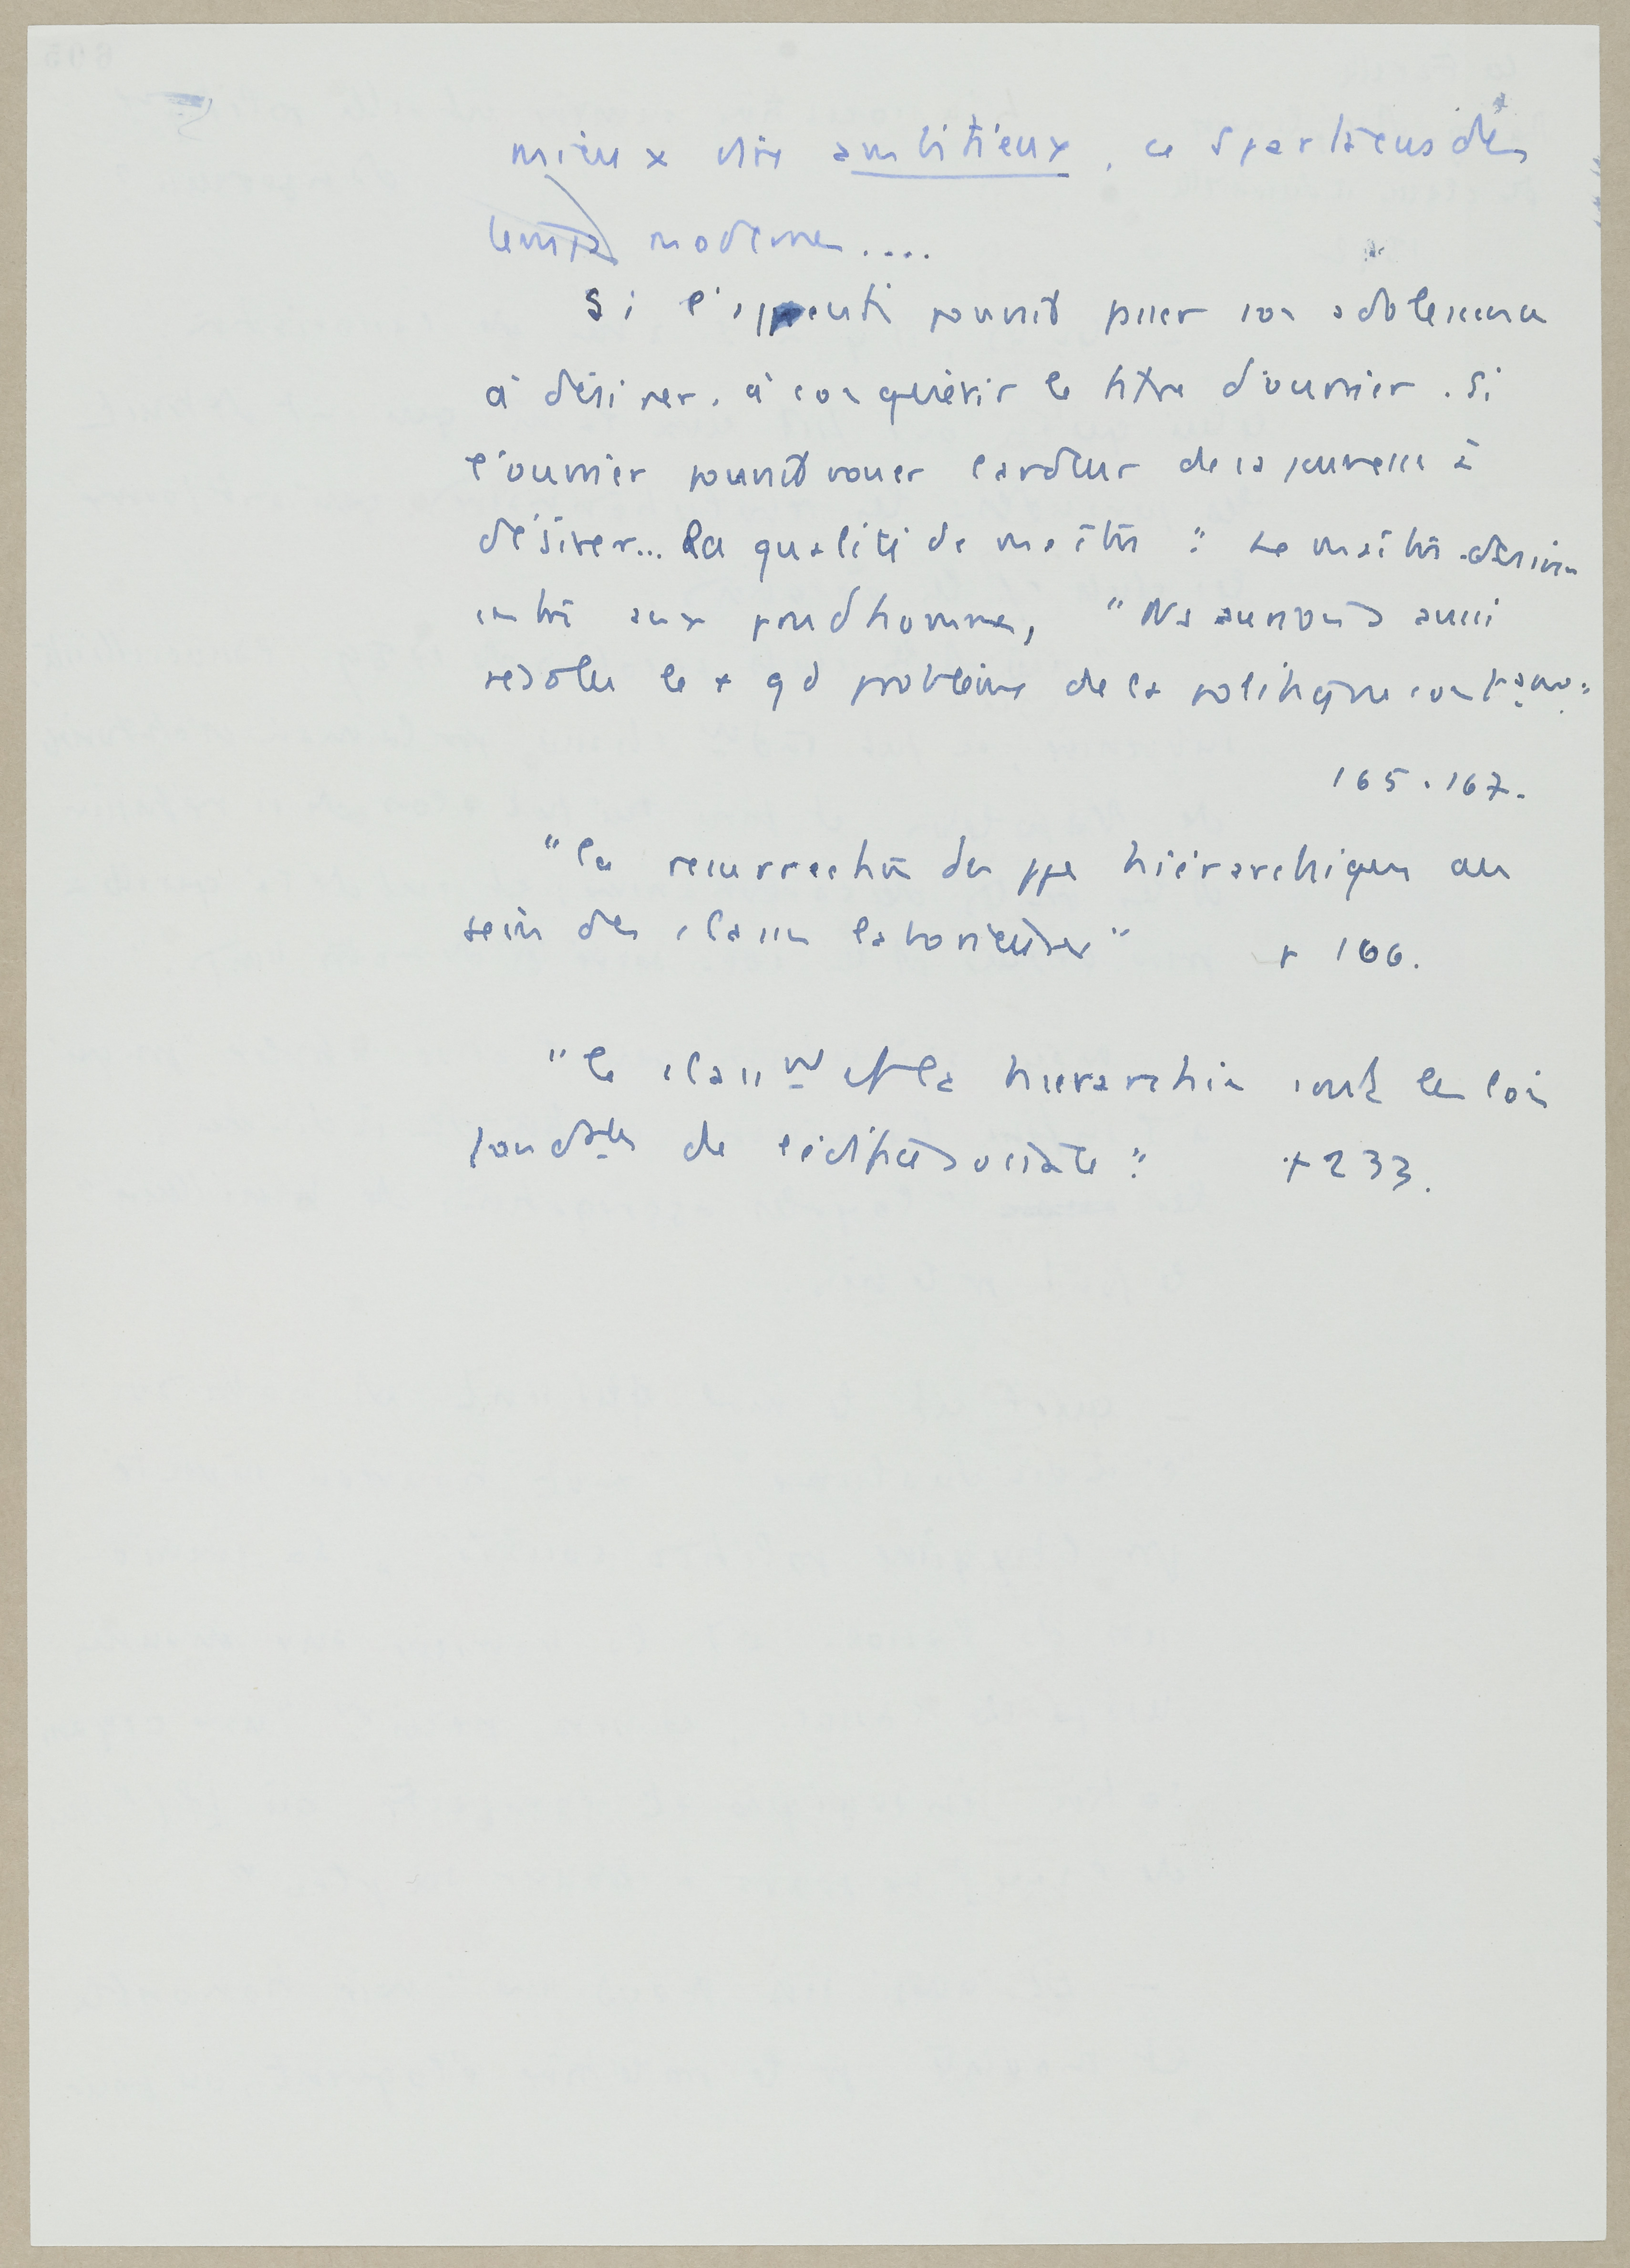 mieux dire ambitieux, ce Spartacus des
temps modernes....
Si l'apprenti pouvait passer son adolescence
à désirer, à conquérir le titre d'ouvrier. Si
l'ouvrier pouvait vouer l'ardeur de sa jeunesse à
désirer... la qualité de maître : Le maître
entre aux prudhommes, "Ns aurions aussi
résolu le + gd problème de la politique contempo:
165.167.
"la résurrection des ppes hiérarchiques au
sein des classes laborieuses" p 166.
"le classt et la hiérarchie sont les lois
fondtales de l'édifice sociale" p 233.